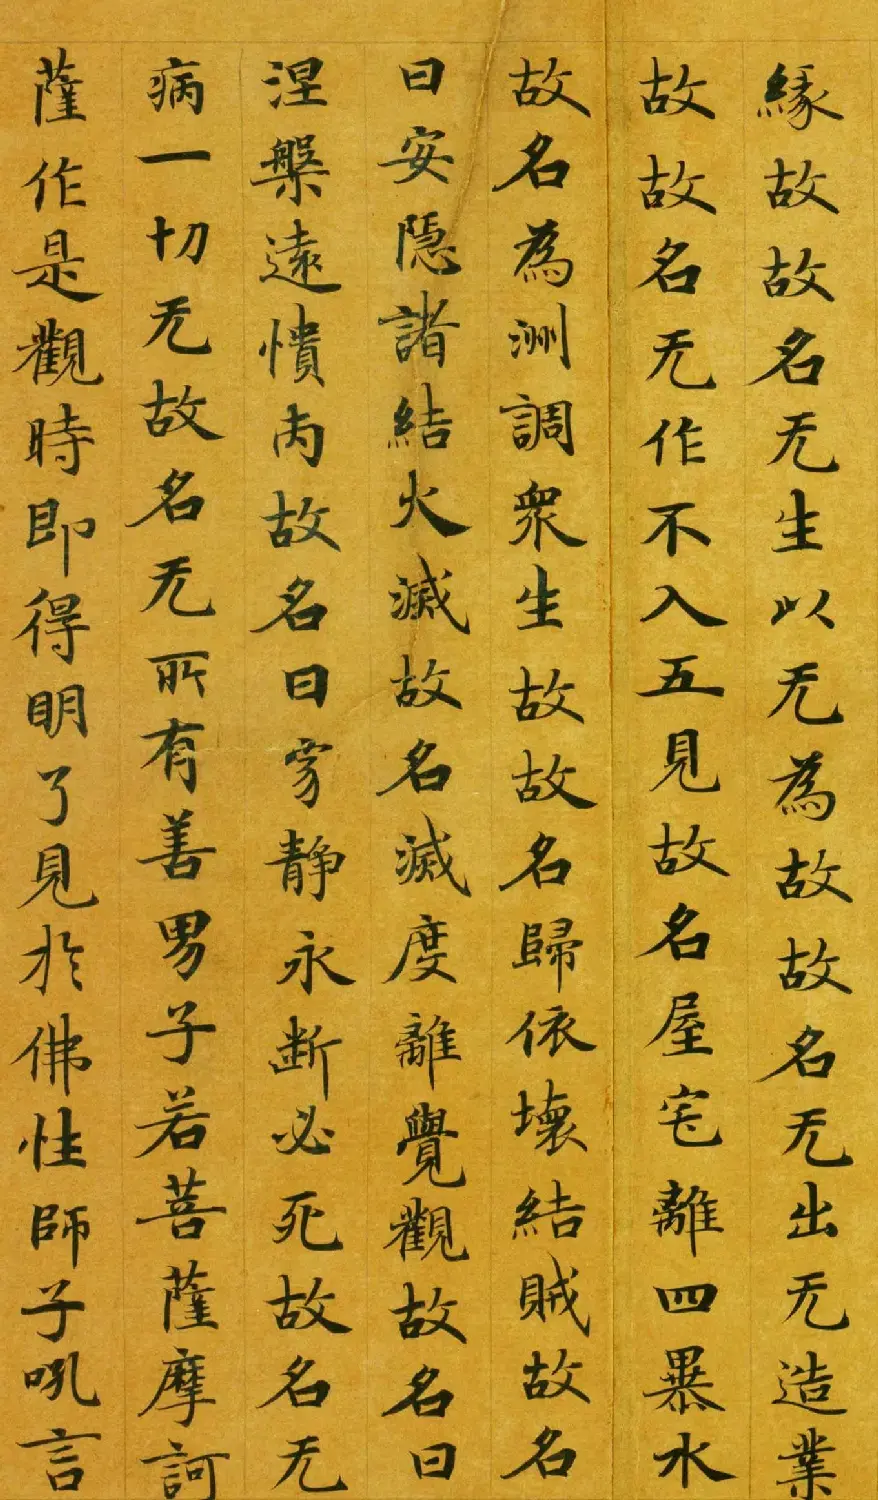 緣故故名无生以无為故故名无出无造業
故故名无作不入五見故名屋宅離四暴水
故名為洲調衆生故故名歸依壞結賊故名
曰安隱諸結火滅故名滅度離覺觀故名曰
涅槃遠憒丙故名曰寂静永断必死故名无
病一切无故名无所有善男子若菩薩摩訶
薩作是觀時即得明了見於佛性師子吼言